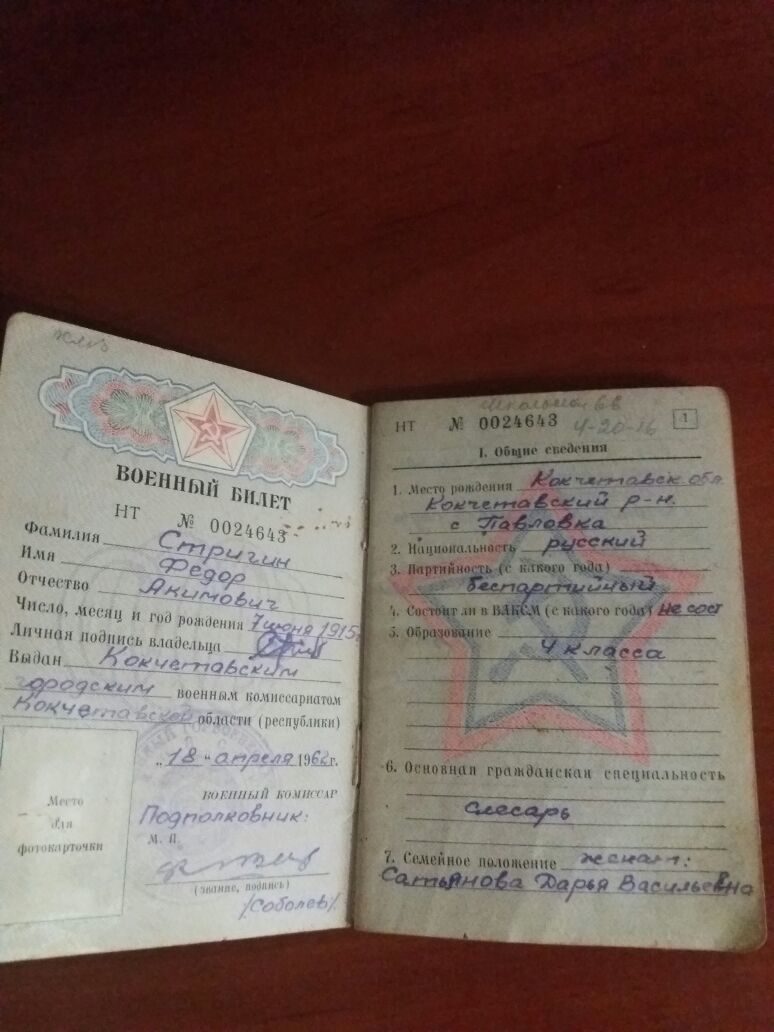 ВОЕННЫЙ БИЛЕТ
НТ № 0024643
Фамилия Стригин
Имя Федор
Отчество Акимович
Число, месяц и год рождения 7 июня 1915г
Личная подпись владельца
Выдан Кокчетавским
городским военным комиссариатом
Кокчетавской области (республики)
„18" апреля 1962г.
ВОЕННЫЙ КОМИССАР
Подполковник:
М. П.
(звание, подпись)
/Соболев/
Место
для
фотокарточки
Школьная
НТ № 0024643 4-20-16 1
I. Общие сведения
1. Место рождения Кокчетавск. обл.
Кокчетавский р-н.
с Павловка
2. Национальность русский
3. Партийность (с какого года)
беспартийный
4. Состоит ли в ВЛКСМ (с какого года) не сост
5. Образование
4 класса
6. Основная гражданская специальность
слесарь
7. Семейное положение женат:
Сатьянова Дарья Васильевна